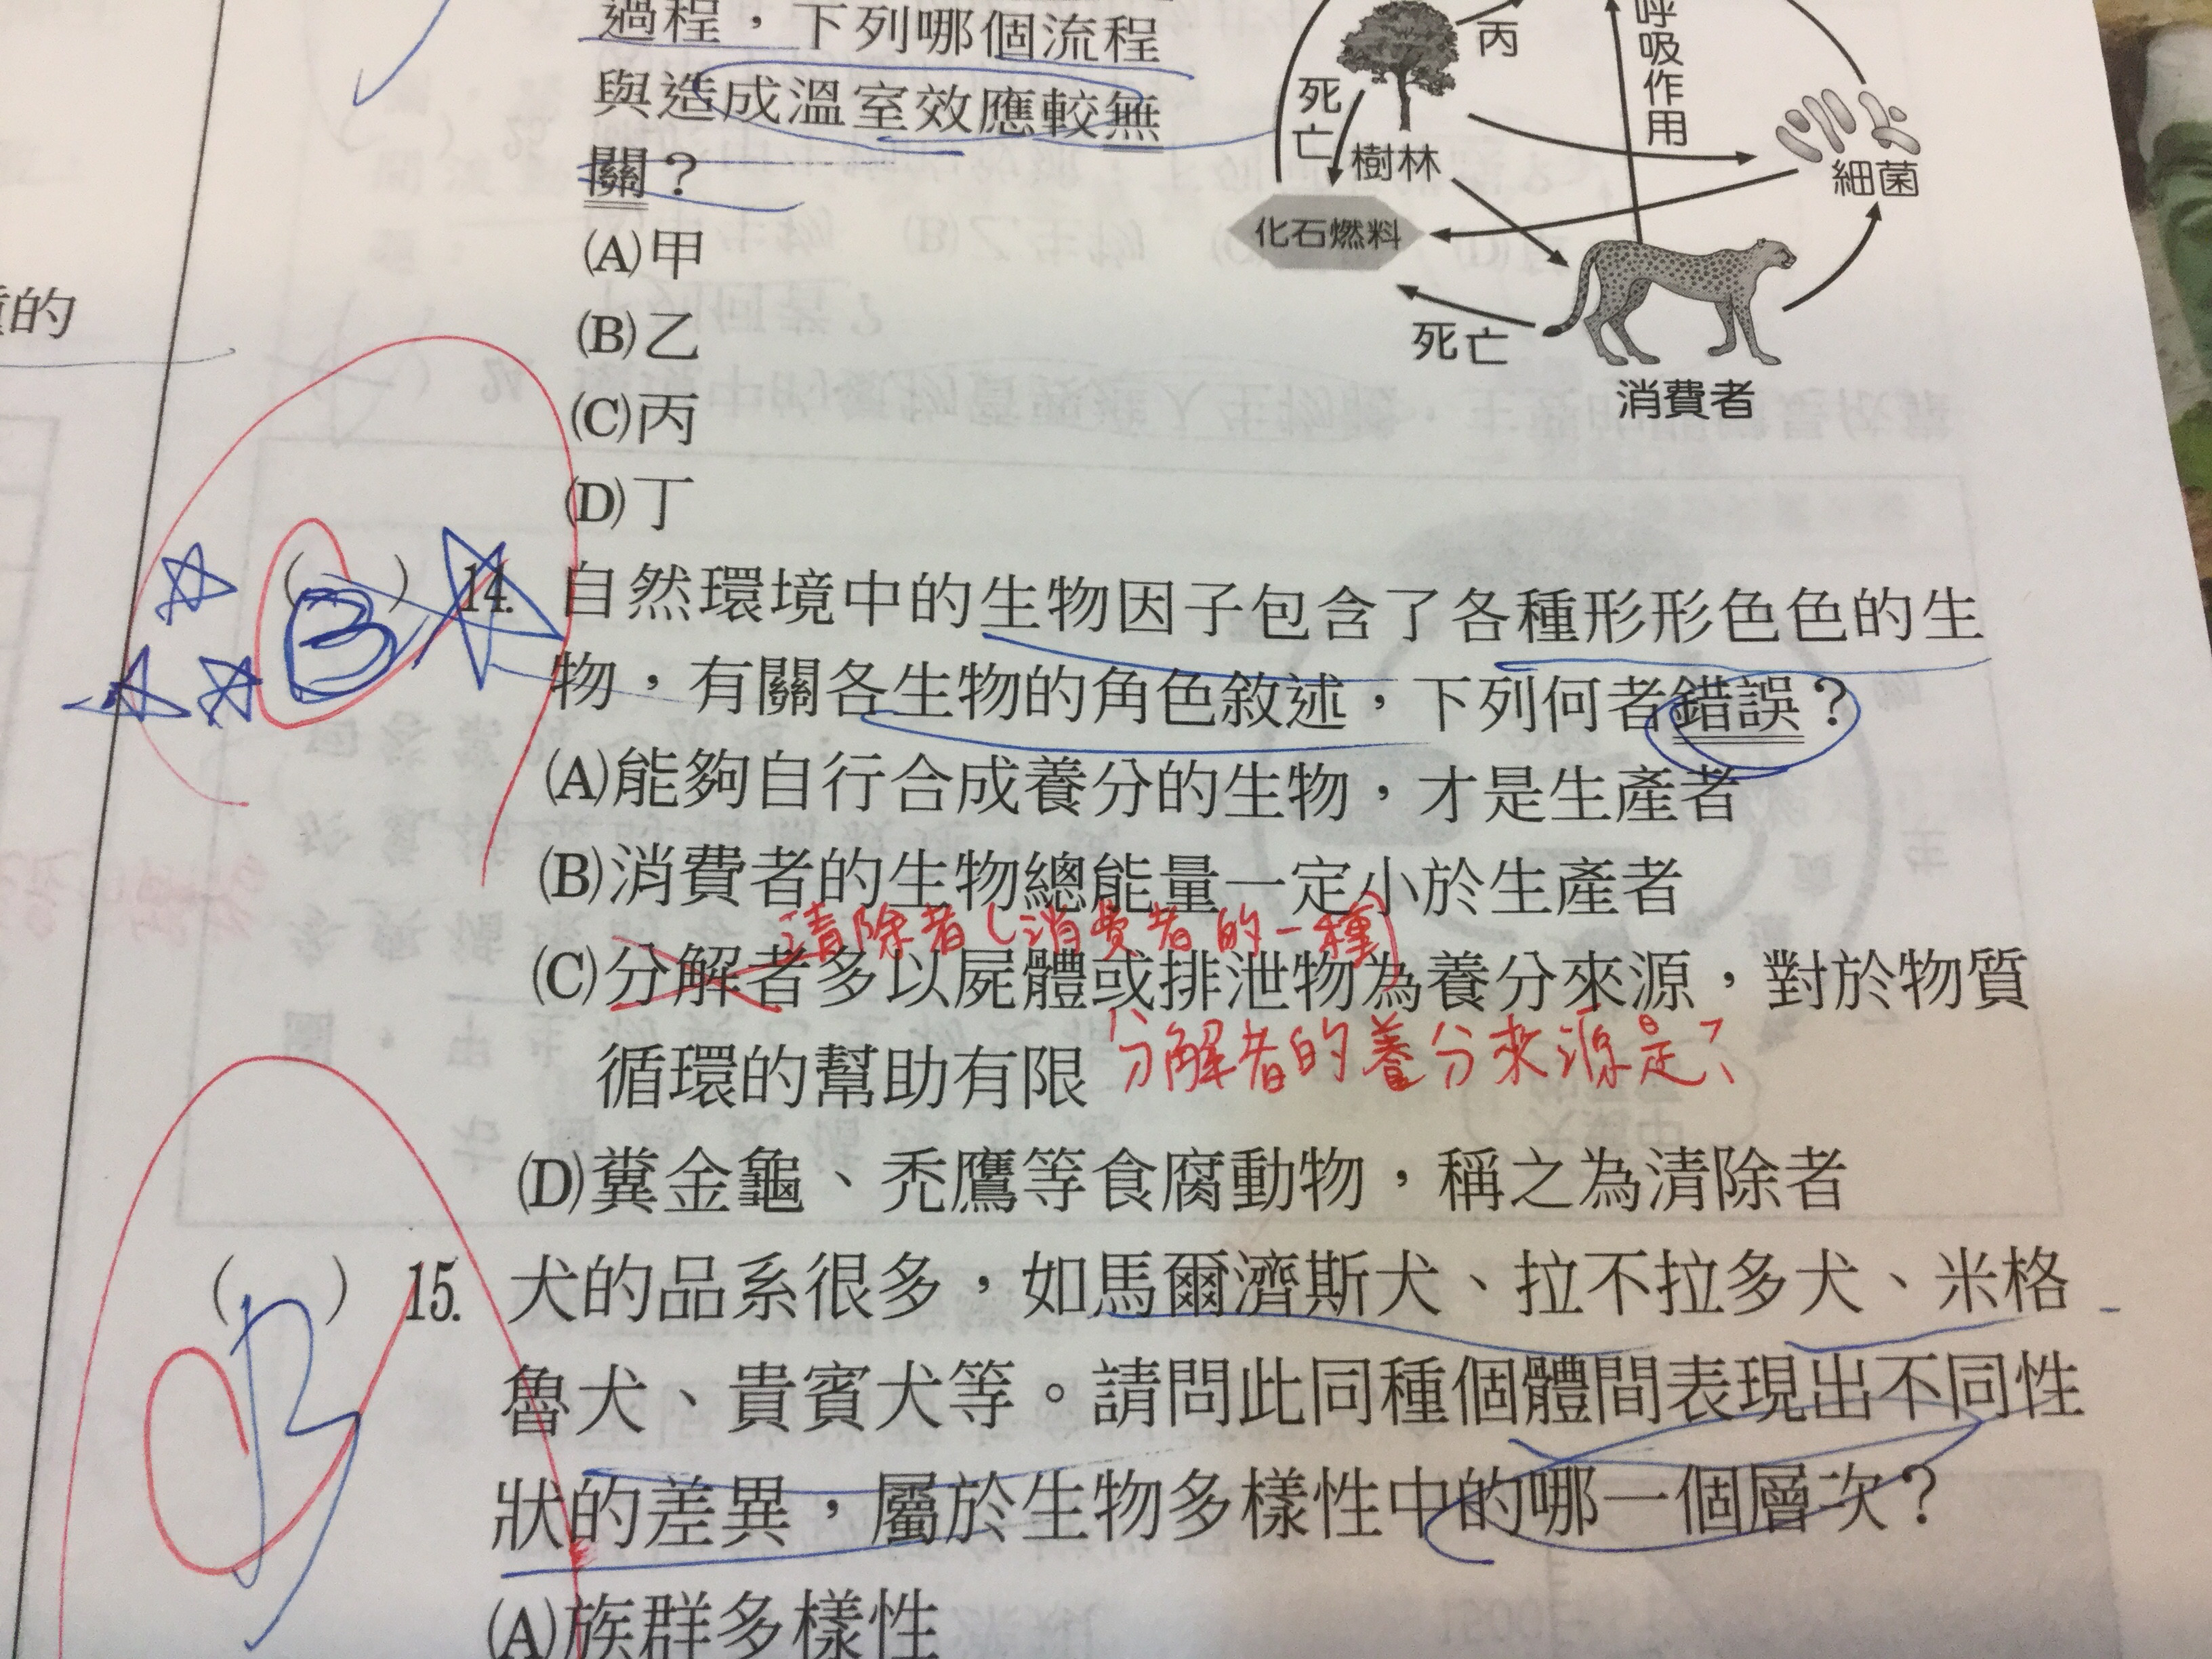 過程，下列哪個流程
與造成溫室效應較無
關？
(A)甲
(B)乙
(C)丙
(D)丁
丙
呼吸作用
死亡
樹林
細菌
化石燃料
死亡
消費者
種的
(B) 14. 自然環境中的生物因子包含了各種形形色色的生
物，有關各生物的角色敘述，下列何者錯誤？
(A)能夠自行合成養分的生物，才是生產者
(B)消費者的生物總能量一定小於生產者
清除者(消費者的一種)
(C)分解者多以屍體或排泄物為養分來源，對於物質
循環的幫助有限
分解者的養分來源是?
(D)糞金龜、禿鷹等食腐動物，稱之為清除者
( ) 15. 犬的品系很多，如馬爾濟斯犬、拉不拉多犬、米格
魯犬、貴賓犬等。請問此同種個體間表現出不同性
狀的差異，屬於生物多樣性中的哪一個層次？
(A)族群多樣性